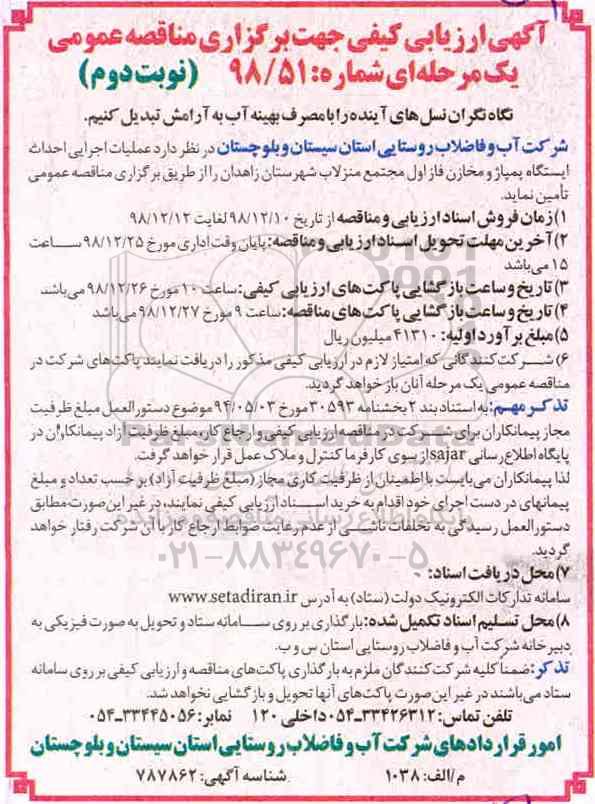 آگهی ارزیابی کیفی جهت برگزاری مناقصه عمومی
یک مرحله‌ای شماره: ۹۸/۵۱ (نوبت دوم)
نگاه نگران نسل‌های آینده را با مصرف بهینه آب به آرامش تبدیل کنیم.
شرکت آب و فاضلاب روستایی استان سیستان و بلوچستان در نظر دارد عملیات اجرایی احداث
ایستگاه پمپاژ و مخازن فاز اول مجتمع منزلاب شهرستان زاهدان را از طریق برگزاری مناقصه عمومی
تأمین نماید.
۱) زمان فروش اسناد ارزیابی و مناقصه از تاریخ ۹۸/۱۲/۱۰ لغایت ۹۸/۱۲/۱۲
۲) آخرین مهلت تحویل اسناد ارزیابی و مناقصه: پایان وقت اداری مورخ ۹۸/۱۲/۲۵ ساعت
۱۵ می‌باشد
۳) تاریخ و ساعت بازگشایی پاکت‌های ارزیابی کیفی: ساعت ۱۰ مورخ ۹۸/۱۲/۲۶ می‌باشد
۴) تاریخ و ساعت بازگشایی پاکت‌های مناقصه: ساعت ۹ مورخ ۹۸/۱۲/۲۷ می‌باشد
۵) مبلغ برآورد اولیه: ۴۱۳۱۰ میلیون ریال
۶) شرکت‌کنندگانی که امتیاز لازم در ارزیابی کیفی مذکور را دریافت نمایند پاکت‌های شرکت در
مناقصه عمومی یک مرحله آنان باز خواهد گردید.
تذکر مهم: به استناد بند ۲ بخشنامه ۳۰۵۹۳ مورخ ۹۴/۰۵/۰۳ موضوع دستورالعمل مبلغ ظرفیت
مجاز پیمانکاران برای شرکت در مناقصه ارزیابی کیفی و ارجاع کار، مبلغ ظرفیت آزاد پیمانکاران در
پایگاه اطلاع رسانی sajar از سوی کارفرما کنترل و ملاک عمل قرار خواهد گرفت.
لذا پیمانکاران می‌بایست با اطمینان از ظرفیت کاری مجاز (مبلغ ظرفیت آزاد) بر حسب تعداد و مبلغ
پیمانهای در دست اجرای خود اقدام به خرید اسناد ارزیابی کیفی نمایند، در غیر این صورت مطابق
دستورالعمل رسیدگی به تخلفات ناشی از عدم رعایت ضوابط ارجاع کار با آن شرکت رفتار خواهد
گردید.
۷) محل دریافت اسناد:
سامانه تدارکات الکترونیک دولت (ستاد) به آدرس www.setadiran.ir
۸) محل تسلیم اسناد تکمیل شده: بارگذاری بر روی سامانه ستاد و تحویل به صورت فیزیکی به
دبیرخانه شرکت آب و فاضلاب روستایی استان س و ب.
تذکر: ضمنا کلیه شرکت کنندگان ملزم به بارگذاری پاکت‌های مناقصه و ارزیابی کیفی بر روی سامانه
ستاد می‌باشند در غیر این صورت پاکت‌های آنها تحویل و بازگشایی نخواهد شد.
تلفن تماس: ۳۳۴۲۶۳۱۲-۰۵۴ داخلی ۱۲۰ نمابر: ۳۳۴۴۵۰۵۶-۰۵۴
امور قراردادهای شرکت آب و فاضلاب روستایی استان سیستان و بلوچستان
م/الف: ۱۰۳۸ شناسه آگهی: ۷۸۷۸۶۲
ParsNamadData
۰۲۱-۸۸۳۴۹۶۷۰-۵